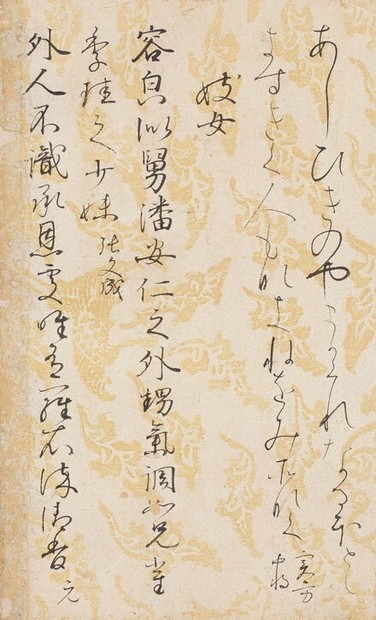 あしひきのやまかくれなるほとゝ
きすきく人もなきねをのみそなく 実方中将
妓女
容皃似舅潘安仁之外甥氣調如兄崔
季珪之少妹 張文成
外人不識承恩處唯有羅衣染御香 元